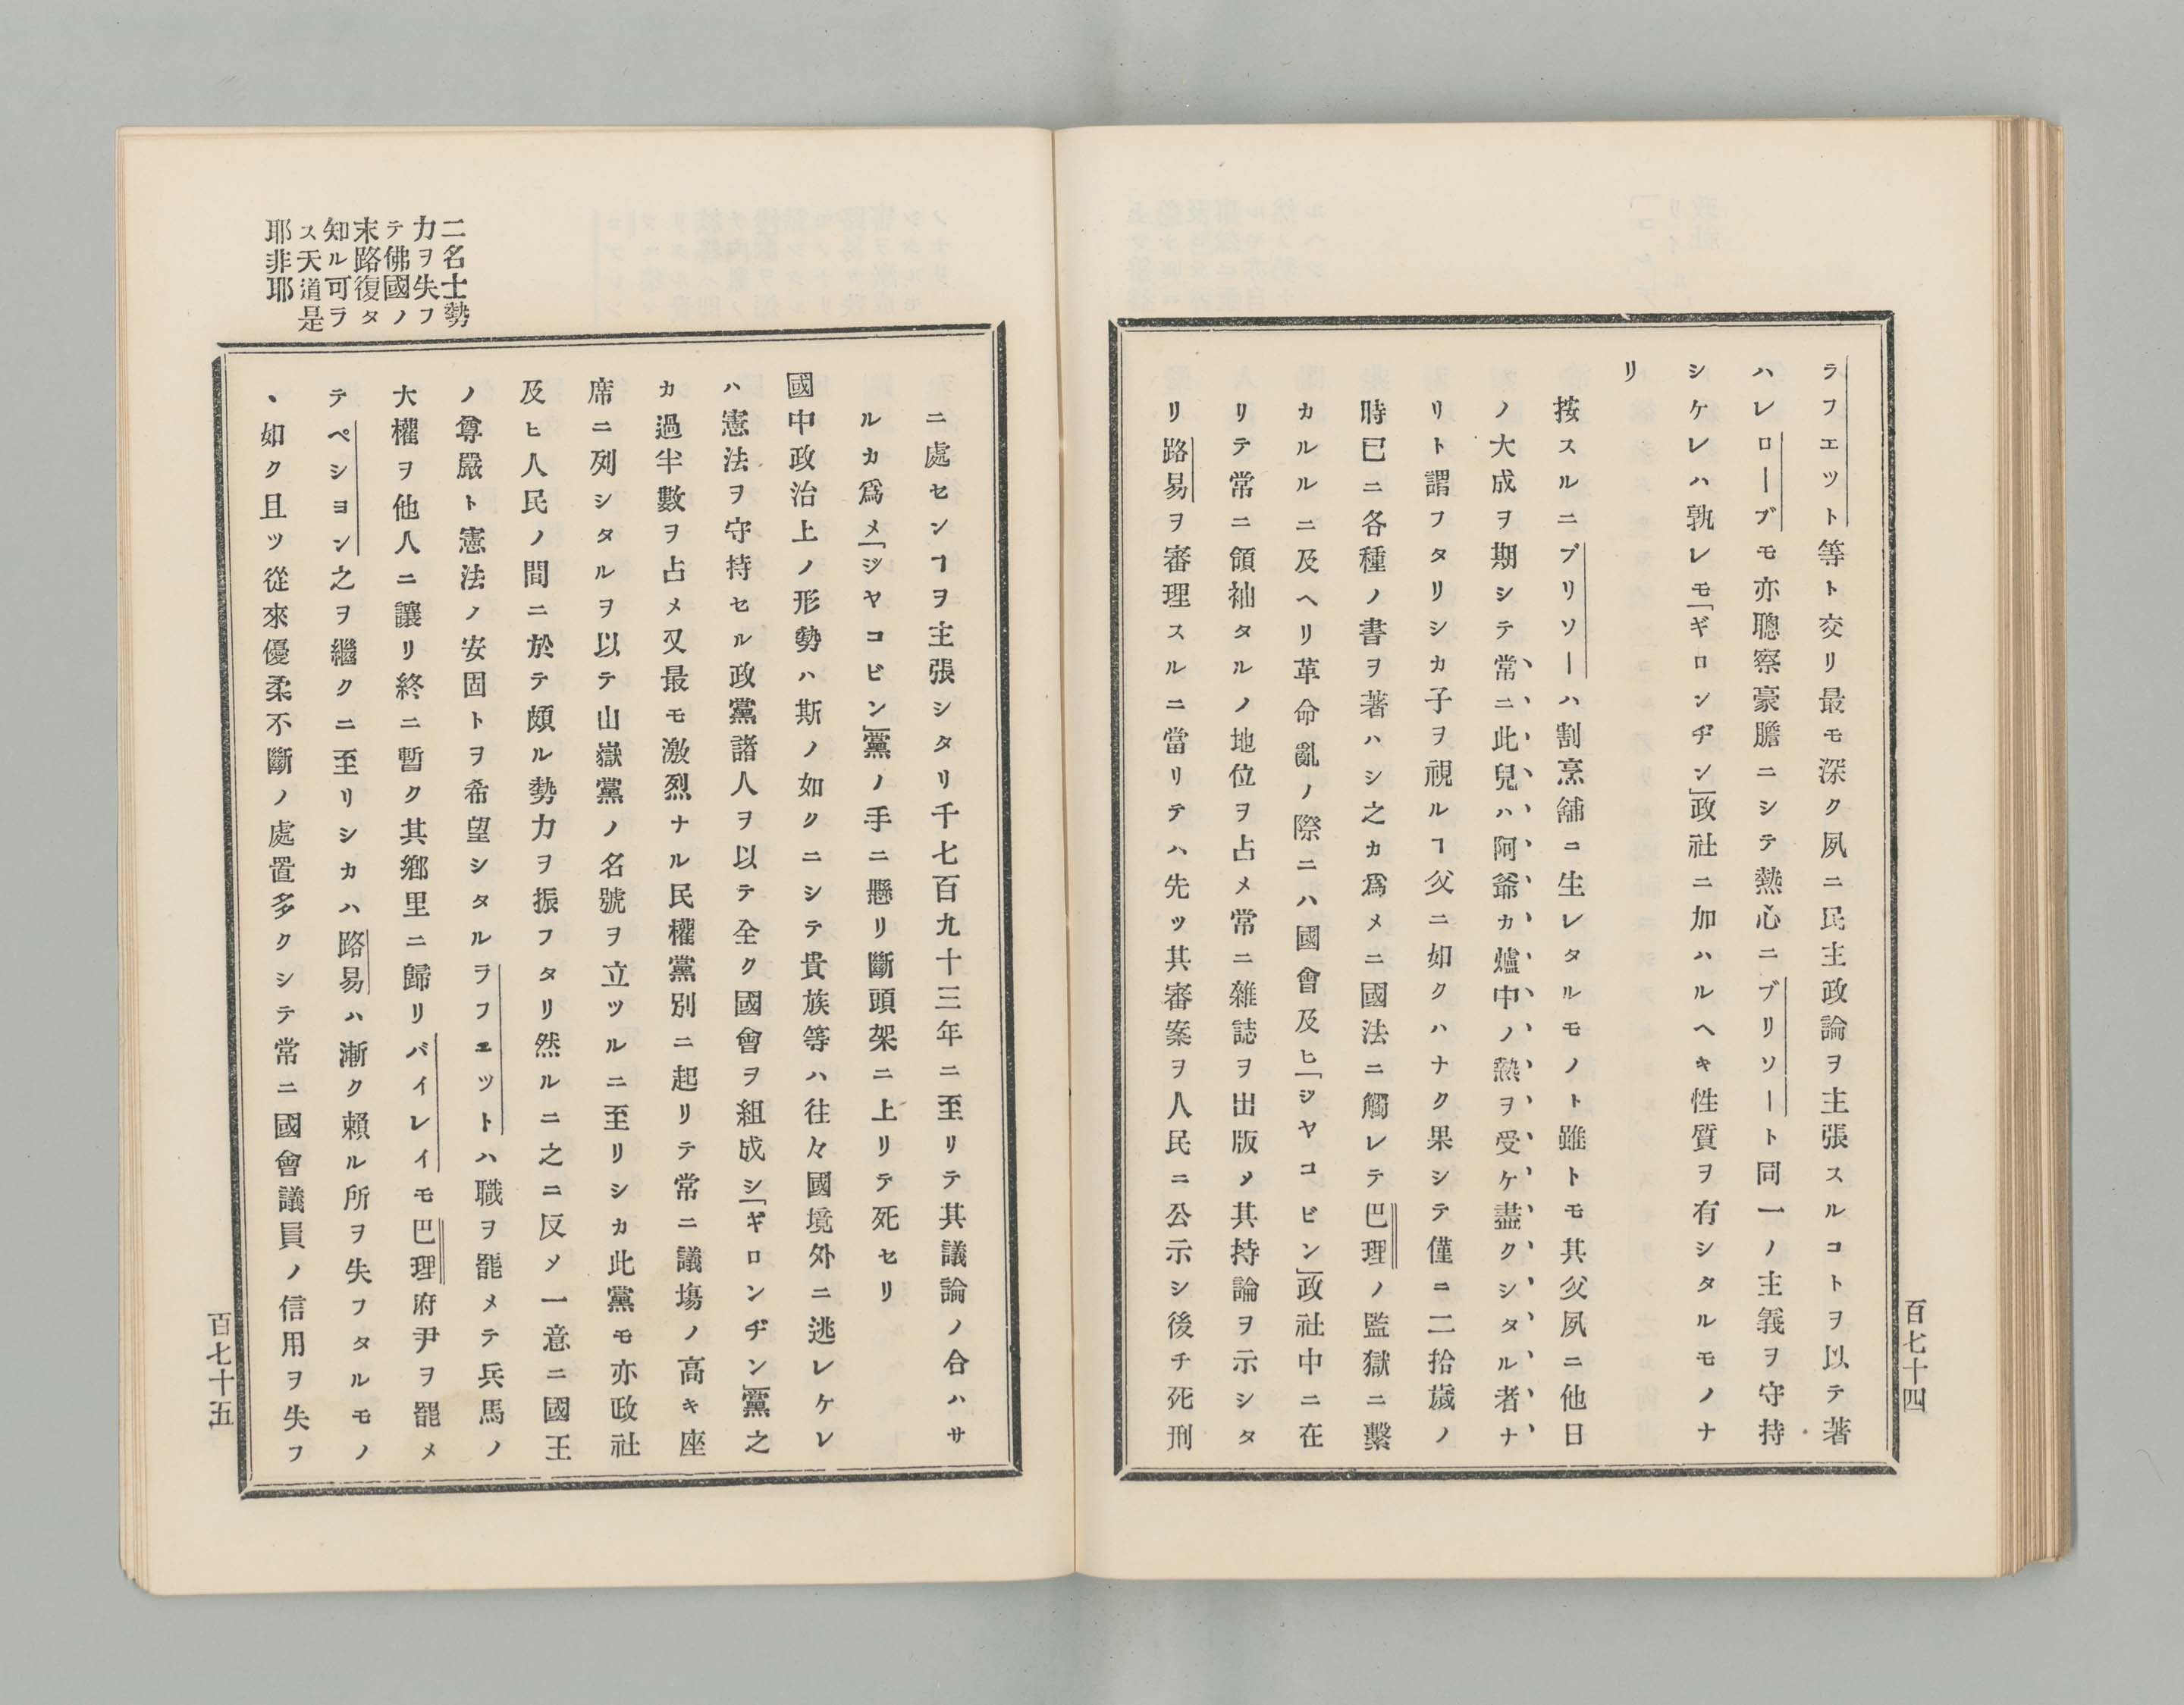 ラフエット等ト交リ最モ深ク夙ニ民主政論ヲ主張スルコトヲ以テ著
ハレローブモ亦聰察豪膽ニシテ熱心ニブリソート同一ノ主義ヲ守持
シケレハ孰レモ「ギロンヂン」政社ニ加ハルヘキ性質ヲ有シタルモノナ
リ
按スルニブリソーハ割烹舖ニ生レタルモノト雖トモ其父夙ニ他日
ノ大成ヲ期シテ常ニ此兒ハ阿爺カ爐中ノ熱ヲ受ケ盡クシタル者ナ
リト謂フタリシカ子ヲ視ルヿ父ニ如クハナク果シテ僅ニ二拾歳ノ
時巳ニ各種ノ書ヲ著ハシ之カ爲メニ國法ニ觸レテ巴理ノ監獄ニ繋
カルルニ及ヘリ革命亂ノ際ニハ國會及ヒ「ジヤコビン」政社中ニ在
リテ常ニ領袖タルノ地位ヲ占メ常ニ雜誌ヲ出版〆其持論ヲ示シタ
リ路易ヲ審理スルニ當リテハ先ッ其審案ヲ人民ニ公示シ後チ死刑
百七十四
ニ處センヿヲ主張シタリ千七百九十三年ニ至リテ其議論ノ合ハサ
ルカ爲メ「ジヤコビン」黨ノ手ニ懸リ斷頭架ニ上リテ死セリ
國中政治上ノ形勢ハ斯ノ如クニシテ貴族等ハ往々國境外ニ逃レケレ
ハ憲法ヲ守持セル政黨諸人ヲ以テ全ク國會ヲ組成シ「ギロンヂン」黨之
カ過半數ヲ占メ又最モ激烈ナル民權黨別ニ起リテ常ニ議塲ノ高キ座
席ニ列シタルヲ以テ山嶽黨ノ名號ヲ立ツルニ至リシカ此黨モ亦政社
及ヒ人民ノ間ニ於テ頗ル勢力ヲ振フタリ然ルニ之ニ反〆一意ニ國王
ノ尊嚴ト憲法ノ安固トヲ希望シタルラフェットハ職ヲ罷メテ兵馬ノ
大權ヲ他人ニ讓リ終ニ暫ク其鄕里ニ歸リバイレイモ巴理府尹ヲ罷メ
テペションン之ヲ繼クニ至リシカハ路易ハ漸ク賴ル所ヲ失フタルモノ
ヽ如ク且ッ從來優柔不斷ノ處置多クシテ常ニ國會議員ノ信用ヲ失フ
二名士勢
力ヲ失フ
テ佛國ノ
末路復タ
知ル可ラ
ス天道是
耶非耶
百七十五